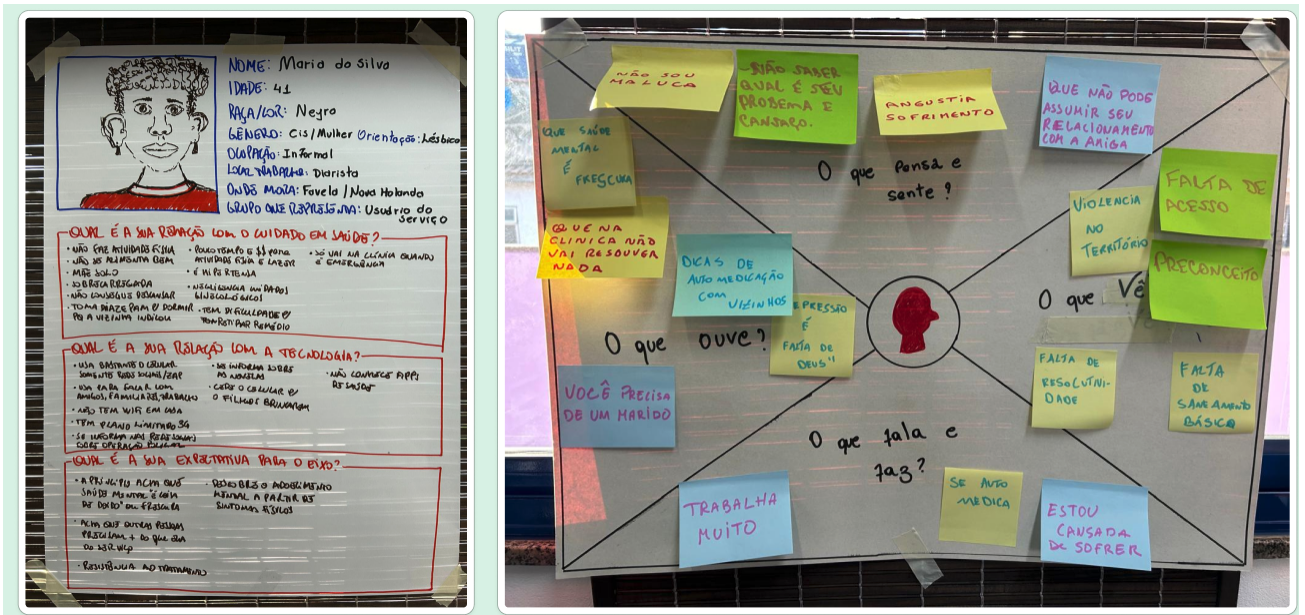 NOME: Maria da Silva
IDADE: 41
RAÇA/COR: Negra
GÊNERO: Cis/Mulher Orientação: Lésbica
OCUPAÇÃO: Informal
LOCAL TRABALHO: Diarista
ONDE MORA: Favela / Nova Holanda
GRUPO QUE REPRESENTA: Usuário do
serviço
QUAL É A SUA RELAÇÃO COM O CUIDADO EM SAÚDE?
• NÃO FAZ ATIVIDADE FÍSICA
• NÃO SE ALIMENTA BEM
• MÃE SOLO
• SOBRECARREGADA
• NÃO CONSEGUE DESCANSAR
• TOMA DIAZEPAM P/ DORMIR
PQ A VIZINHA INDICOU
• POUCO TEMPO E $$ PARA
ATIVIDADE FÍSICA E LAZER
• É HIPERTENSA
• NEGLIGENCIA CUIDADOS
GINECOLÓGICOS
• TEM DIFICULDADE P/
REMÉDIO
• SÓ VAI NA CLÍNICA QUANDO
É EMERGÊNCIA
QUAL É A SUA RELAÇÃO COM A TECNOLOGIA?
• USA BASTANTE O CELULAR
SOMENTE REDE SOCIAIS/ZAP
• USA PARA FALAR COM
AMIGOS, FAMILIARES, TRABALHO
• NÃO TEM WIFI EM CASA
• TEM PLANO LIMITADO 3G
• SE INFORMA NAS REDES SOCIAIS
SOBRE OPERAÇÃO POLICIAL
• SE INFORMA SOBRE
AS NOVELAS
• CEDE O CELULAR P/
O FILHOS BRINCAREM
• NÃO CONHECE APPS
DE SAÚDE
QUAL É A SUA EXPECTATIVA PARA O EIXO?
• A PRINCÍPIO ACHA QUE
SAÚDE MENTAL "É COISA
DE DOIDO" OU FRESCURA
• ACHA QUE OUTRAS PESSOAS
PRECISAM + DO QUE ELA
DO SERVIÇO
• RESISTÊNCIA AO TRATAMENTO
• DESCOBRE O ADOECIMENTO
MENTAL A PARTIR DE
SINTOMAS FÍSICOS
NÃO SOU
MALUCA
NÃO SABER
QUAL É SEU
PROBEMA E
CANSAÇO.
ANGUSTIA
SOFRIMENTO
QUE NÃO PODE
ASSUMIR SEU
RELACIONAMENTO
COM A AMIGA
O que pensa e
sente?
QUE SAÚDE
MENTAL
É
FRESCURA
QUE NA
CLINICA NÃO
VAI RESOUVER
NADA
DICAS DE
AUTO MEDICAÇÃO
COM
VIZINHOS
EPRESSÃO
É
FALTA DE
DEUS"
O que ouve?
VOCÊ PRECISA
DE UM MARIDO
VIOLENCIA
NO
TERRITÓRIO
FALTA DE
ACESSO
PRECONCEITO
O que Vê
FALTA DE
RESOLUTIVI-
DADE
FALTA
DE
SANEAMENTO
BÁSICO
O que fala e
faz?
TRABALHA
MUITO
SE AUTO
MEDICA
ESTOU
CANSADA
DE SOFRER